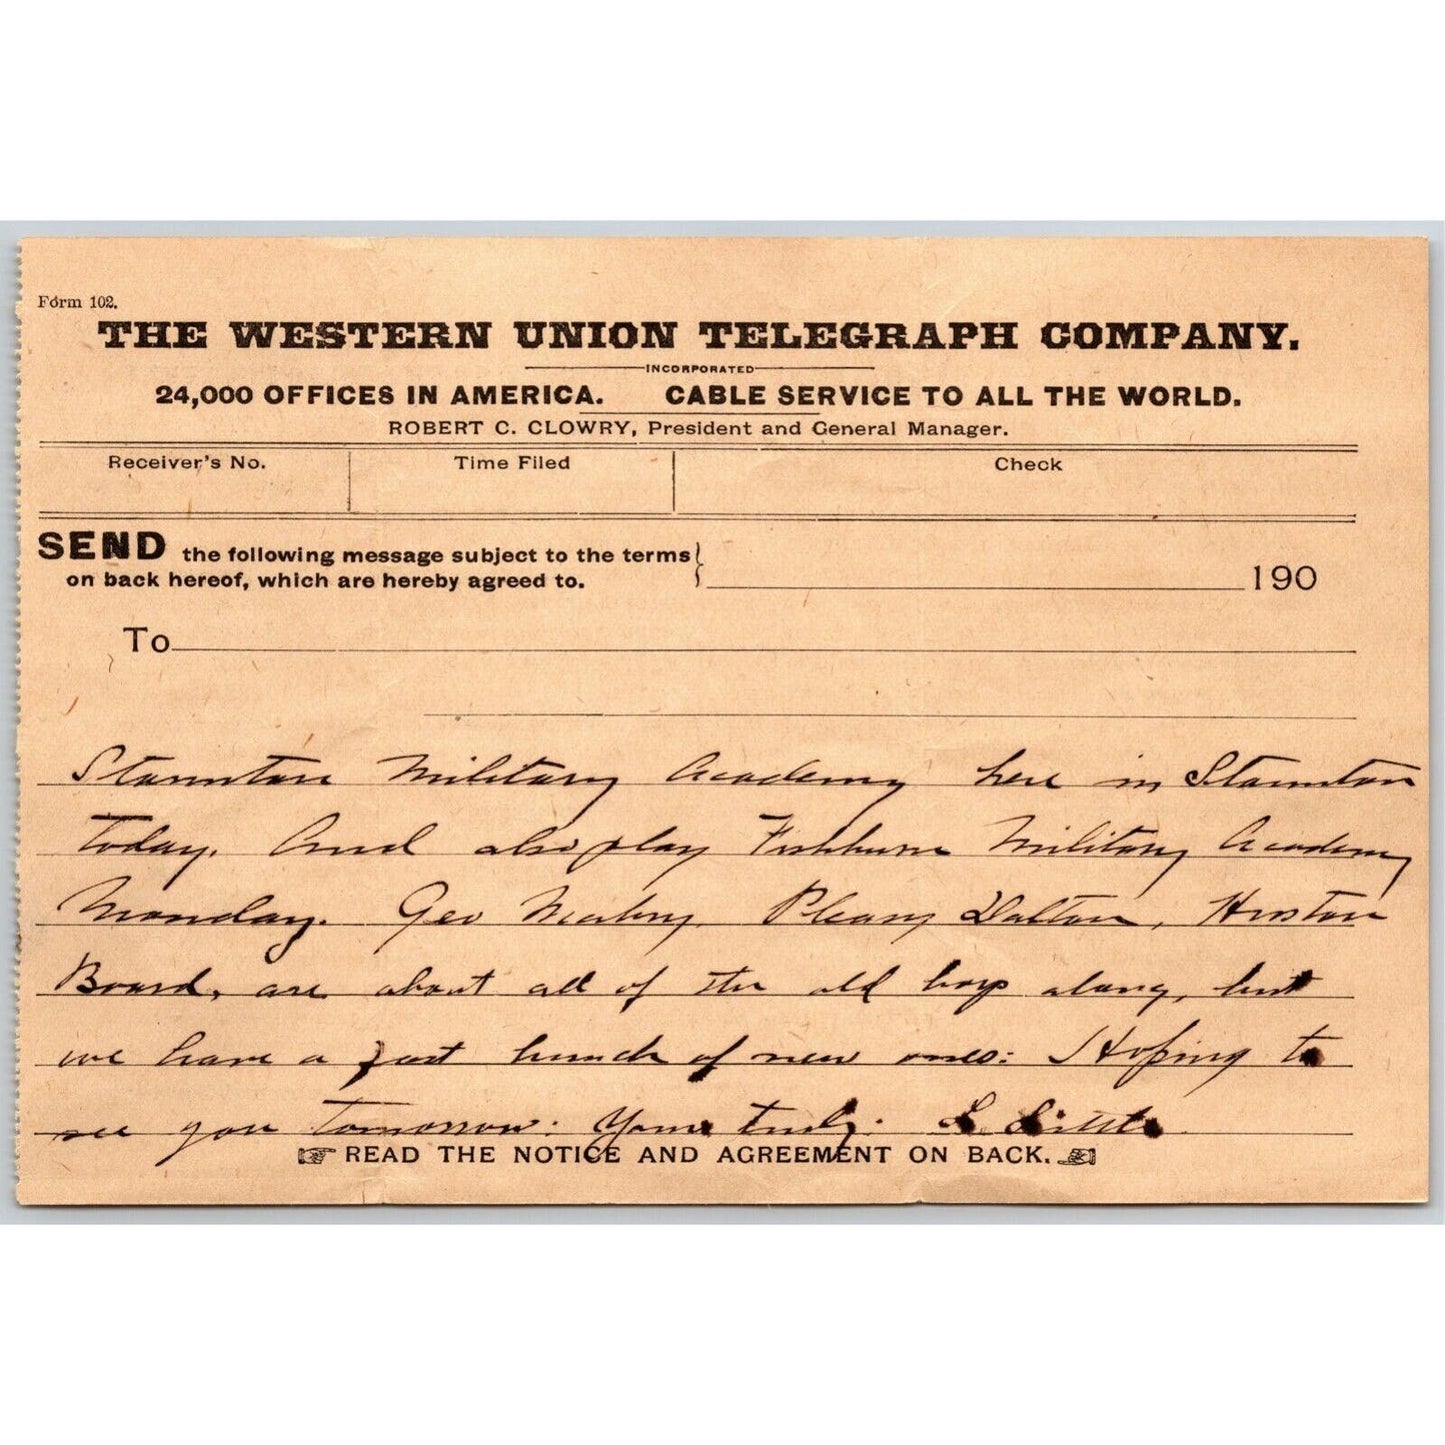 Form 102.
THE WESTERN UNION TELEGRAPH COMPANY.
INCORPORATED
24,000 OFFICES IN AMERICA. CABLE SERVICE TO ALL THE WORLD.
ROBERT C. CLOWRY, President and General Manager.
Receiver's No. Time Filed Check
SEND the following message subject to the terms
on back hereof, which are hereby agreed to. 190
To
Staunton Military Academy here in Staunton
Today. And also play Fishburne Military Academy
Monday. Geo Pleasy Dalton, Huston
Board, are about all of the old boys along, but
we have a fast bunch of new ones: Hoping to
see you tomorrow: Yours truly. L. Little
READ THE NOTICE AND AGREEMENT ON BACK.